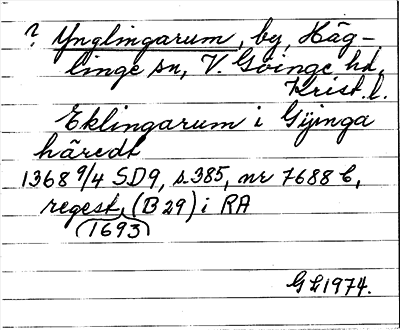 ? Ynglingarum, by, Häg-
linge sn, V. Göinge hd,
Krist. l.
Eklingarum i Gyinga
häredt
1368 9/4 SD9, s. 385, nr 7688 b,
regest, (B 29) i RA
(1693)
GL1974.